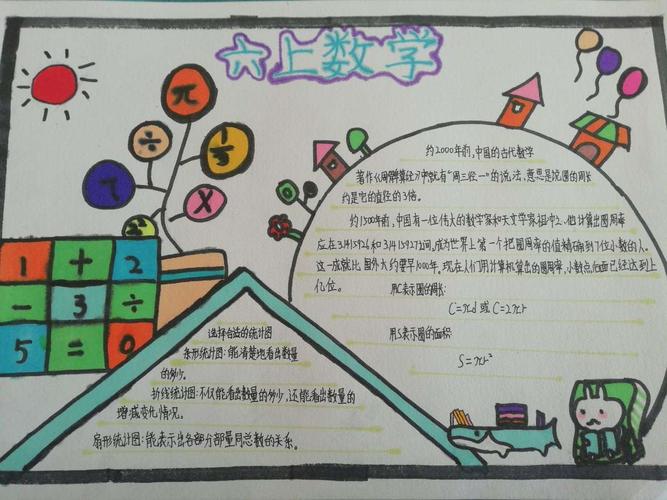 六上数学
π
÷
1/3
7
X
0
1 + 2
- 3 ÷
5 = 0
约2000年前,中国的古代数学
著作《周髀算经》中就有“周三径一”的说法,意思是说圆的周长
约是它的直径的3倍。
约1500年前,中国有一位伟大的数学家和天文学家祖冲之.他计算出圆周率
应在3.1415926和3.1415927之间,成为世界上第一个把圆周率的值精确到7位小数的人.
这一成就比国外大约要早1000年.现在人们用计算机算出的圆周率,小数点后面已经达到上
亿位。
用C表示圆的周长:
C=πd 或 C=2πr
用S表示圆的面积:
S=πr²
选择合适的统计图
条形统计图:能清楚地看出数量
的多少。
折线统计图:不仅能看出数量的多少,还能看出数量的
增减变化情况。
扇形统计图:能表示出各部分部量同总数的关系。